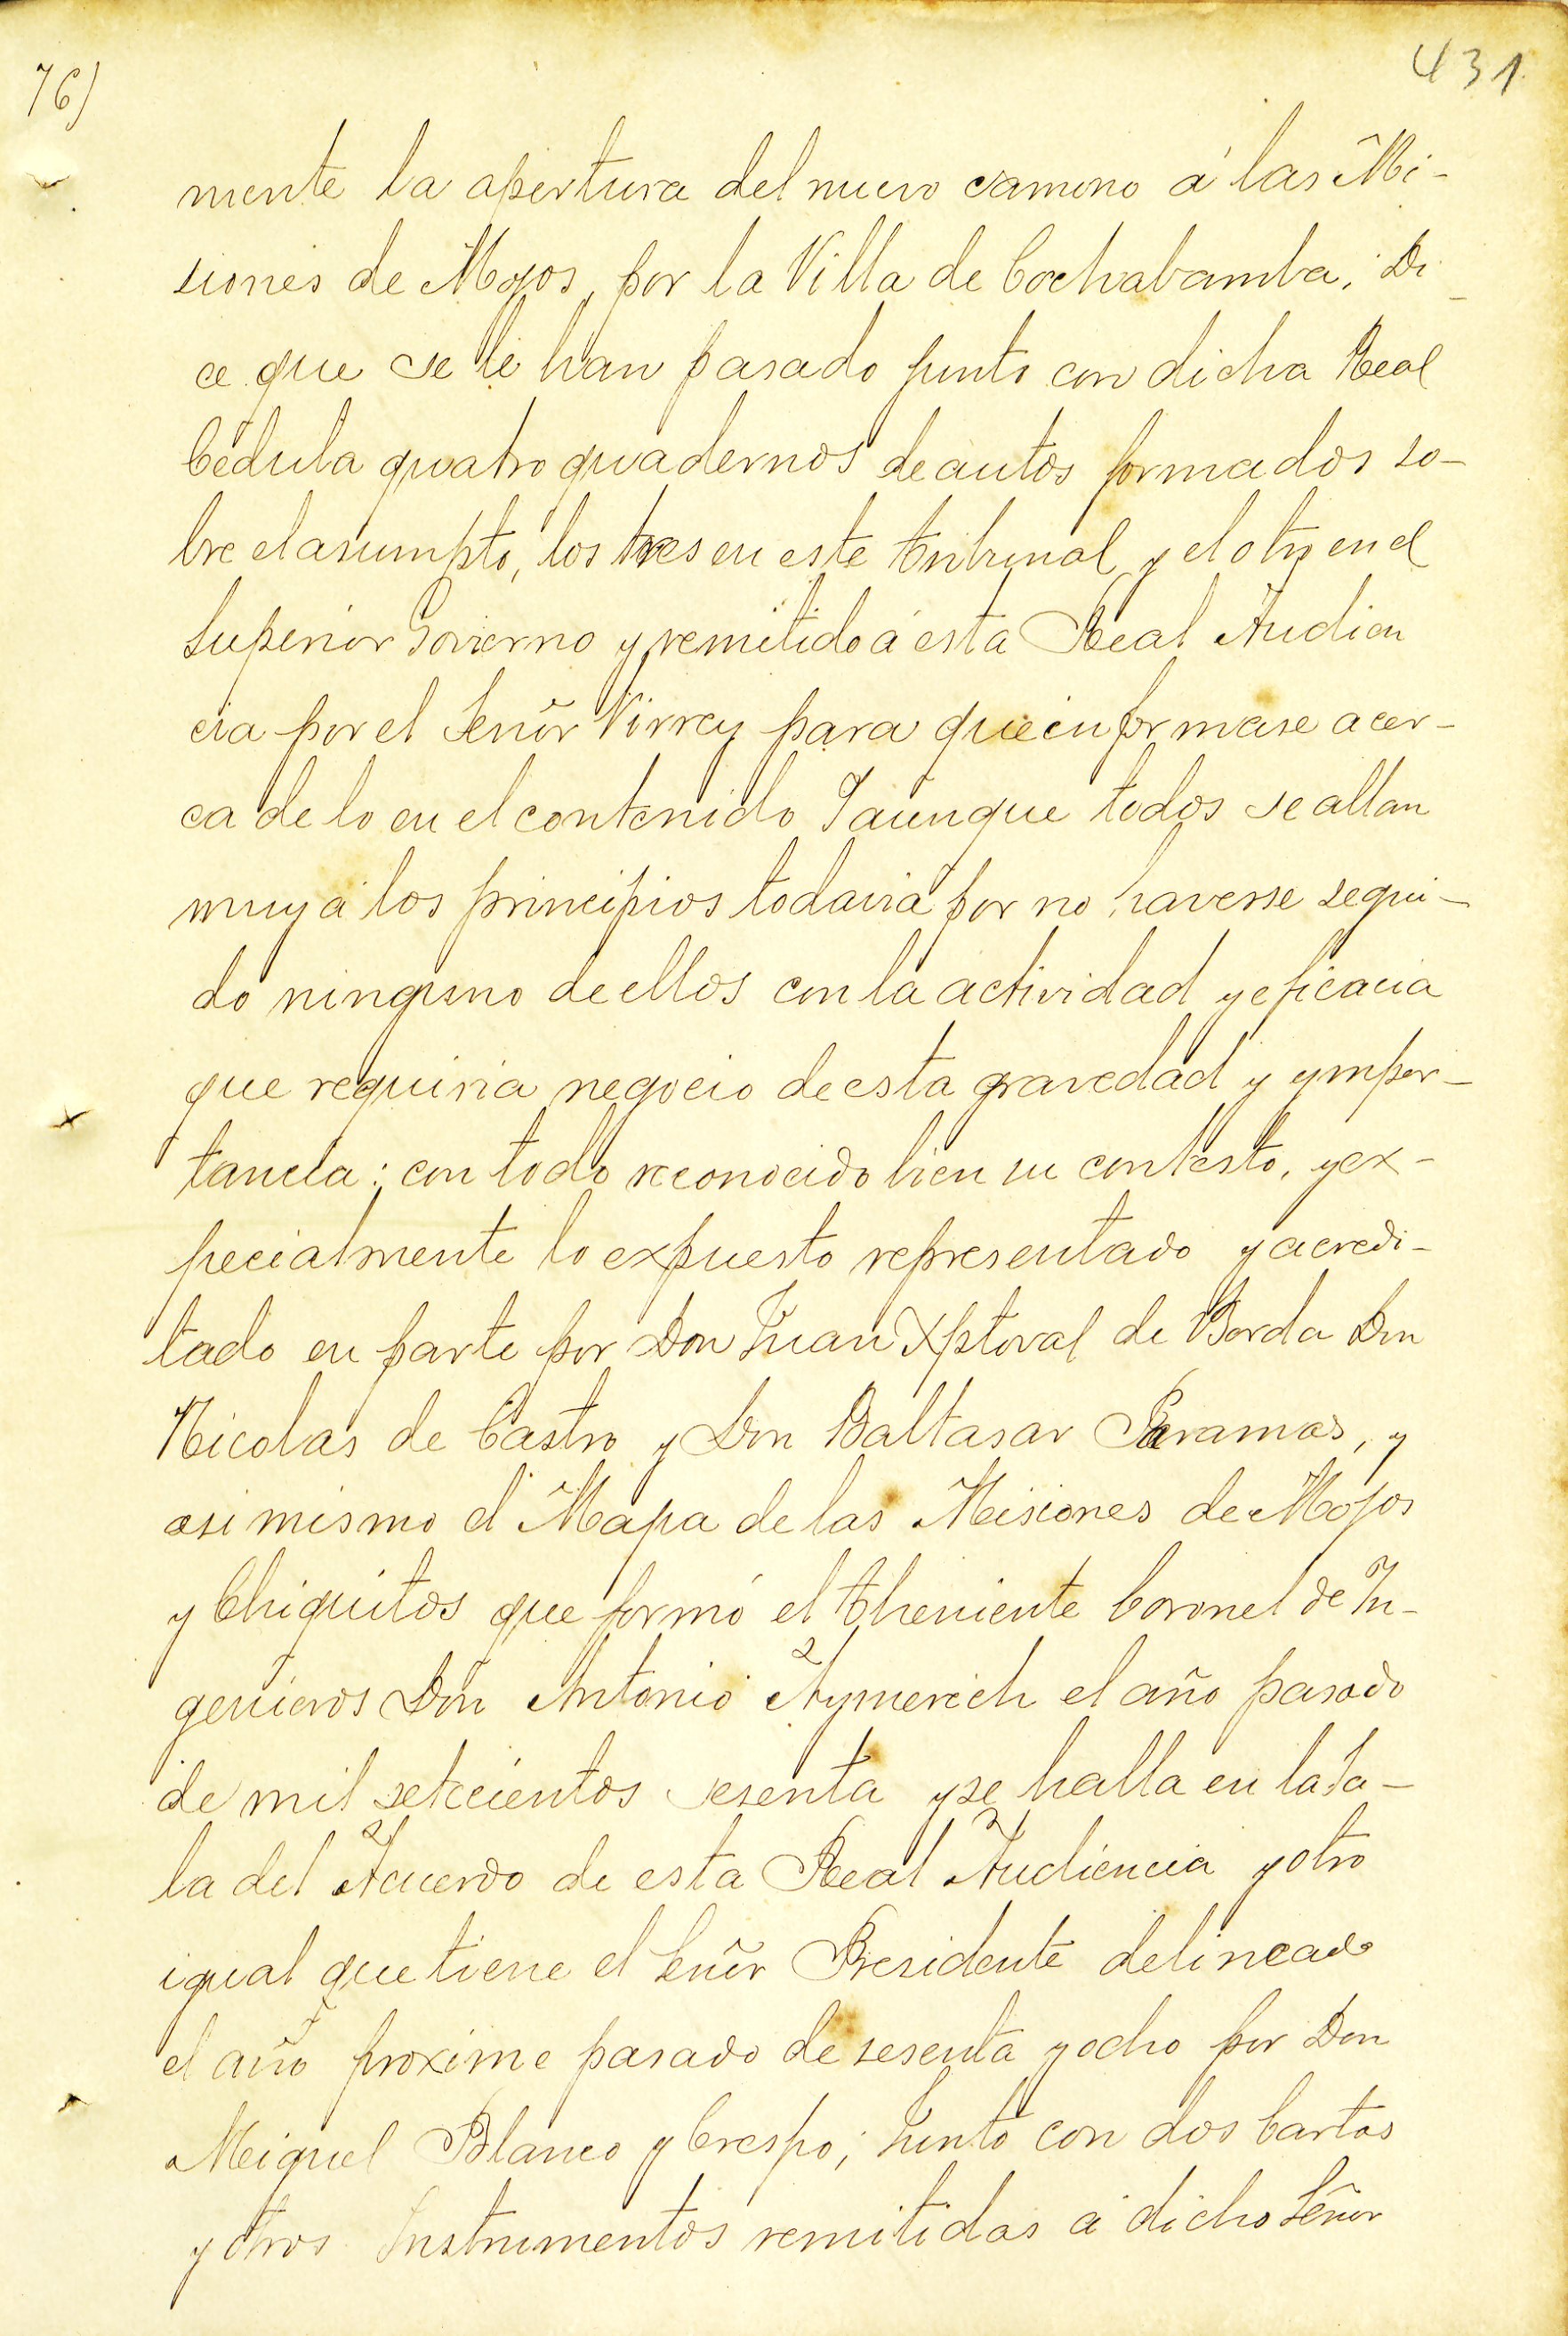 76)
431
mente la apertura del nuevo camino á las Mi-
siones de Mojos, por la Villa de Cochabamba, Di-
ce que se le han pasado junto con dicha Real
Cédula quatro quadernos de autos formados so-
bre el asumpto, los tres en este tribunal y el otro en el
Superior Govierno y remitido á esta Real Audien
cia por el Señor Virrey para que informase acer-
ca de lo en el contenido Y aunque todos se allan
muy á los principios todavia por no haverse segui-
do ninguno de ellos con la actividad y eficacia
que requiria negocio de esta gravedad y ympor-
tancia: con todo reconocido bien su contesto, y ex-
pecialmente lo expuesto representado y acredi-
tado en parte por Don Juan Xptoval de Borda Don
Nicolas de Castro y Don Baltasar Paramas, y
asi mismo el Mapa de las Misiones de Mojos
y Chiquitos que formó el Theniente Coronel de In-
genieros Don Antonio Aymerich el año pasado
de mil setecientos sesenta y se halla en la Sa-
la del Acuerdo de esta Real Audiencia y otro
igual que tiene el Señor Presidente delineado
el año proximo pasado de sesenta y ocho por Don
Miguel Blanco y Crespo; Junto con dos Cartas
y otros Instrumentos remitidas á dicho Señor